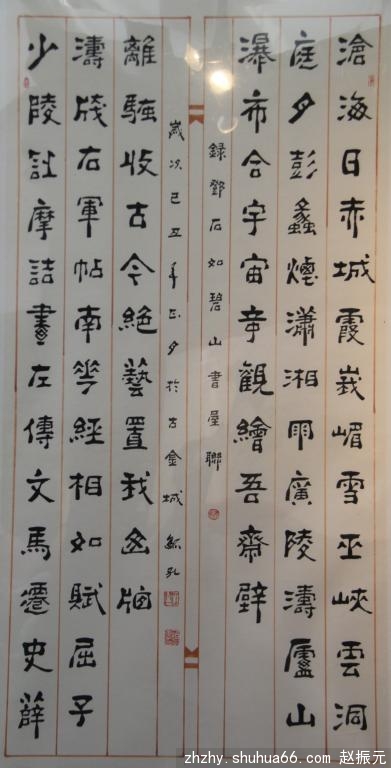 滄海日赤城霞峩嵋雪巫峽雲洞
庭月彭蠡煙瀟湘雨廣陵濤廬山
瀑布合宇宙奇觀繪吾齋壁
録鄧石如碧山書屋聯
少陵詩摩詰畫左傳文馬遷史薛
濤牋右軍帖南華經相如賦屈子
離騷收古今絕藝置我山窗
歲次己丑年正月於古金城
zhzhy.shuhua66.com 赵振元